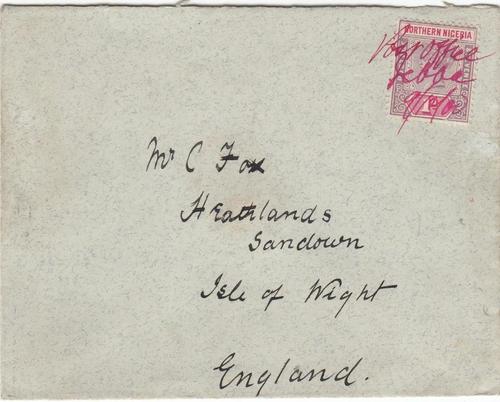 NORTHERN NIGERIA
Post office
Jebba
1d
Mr C Fox
Heathlands
Sandown
Isle of Wight
England.